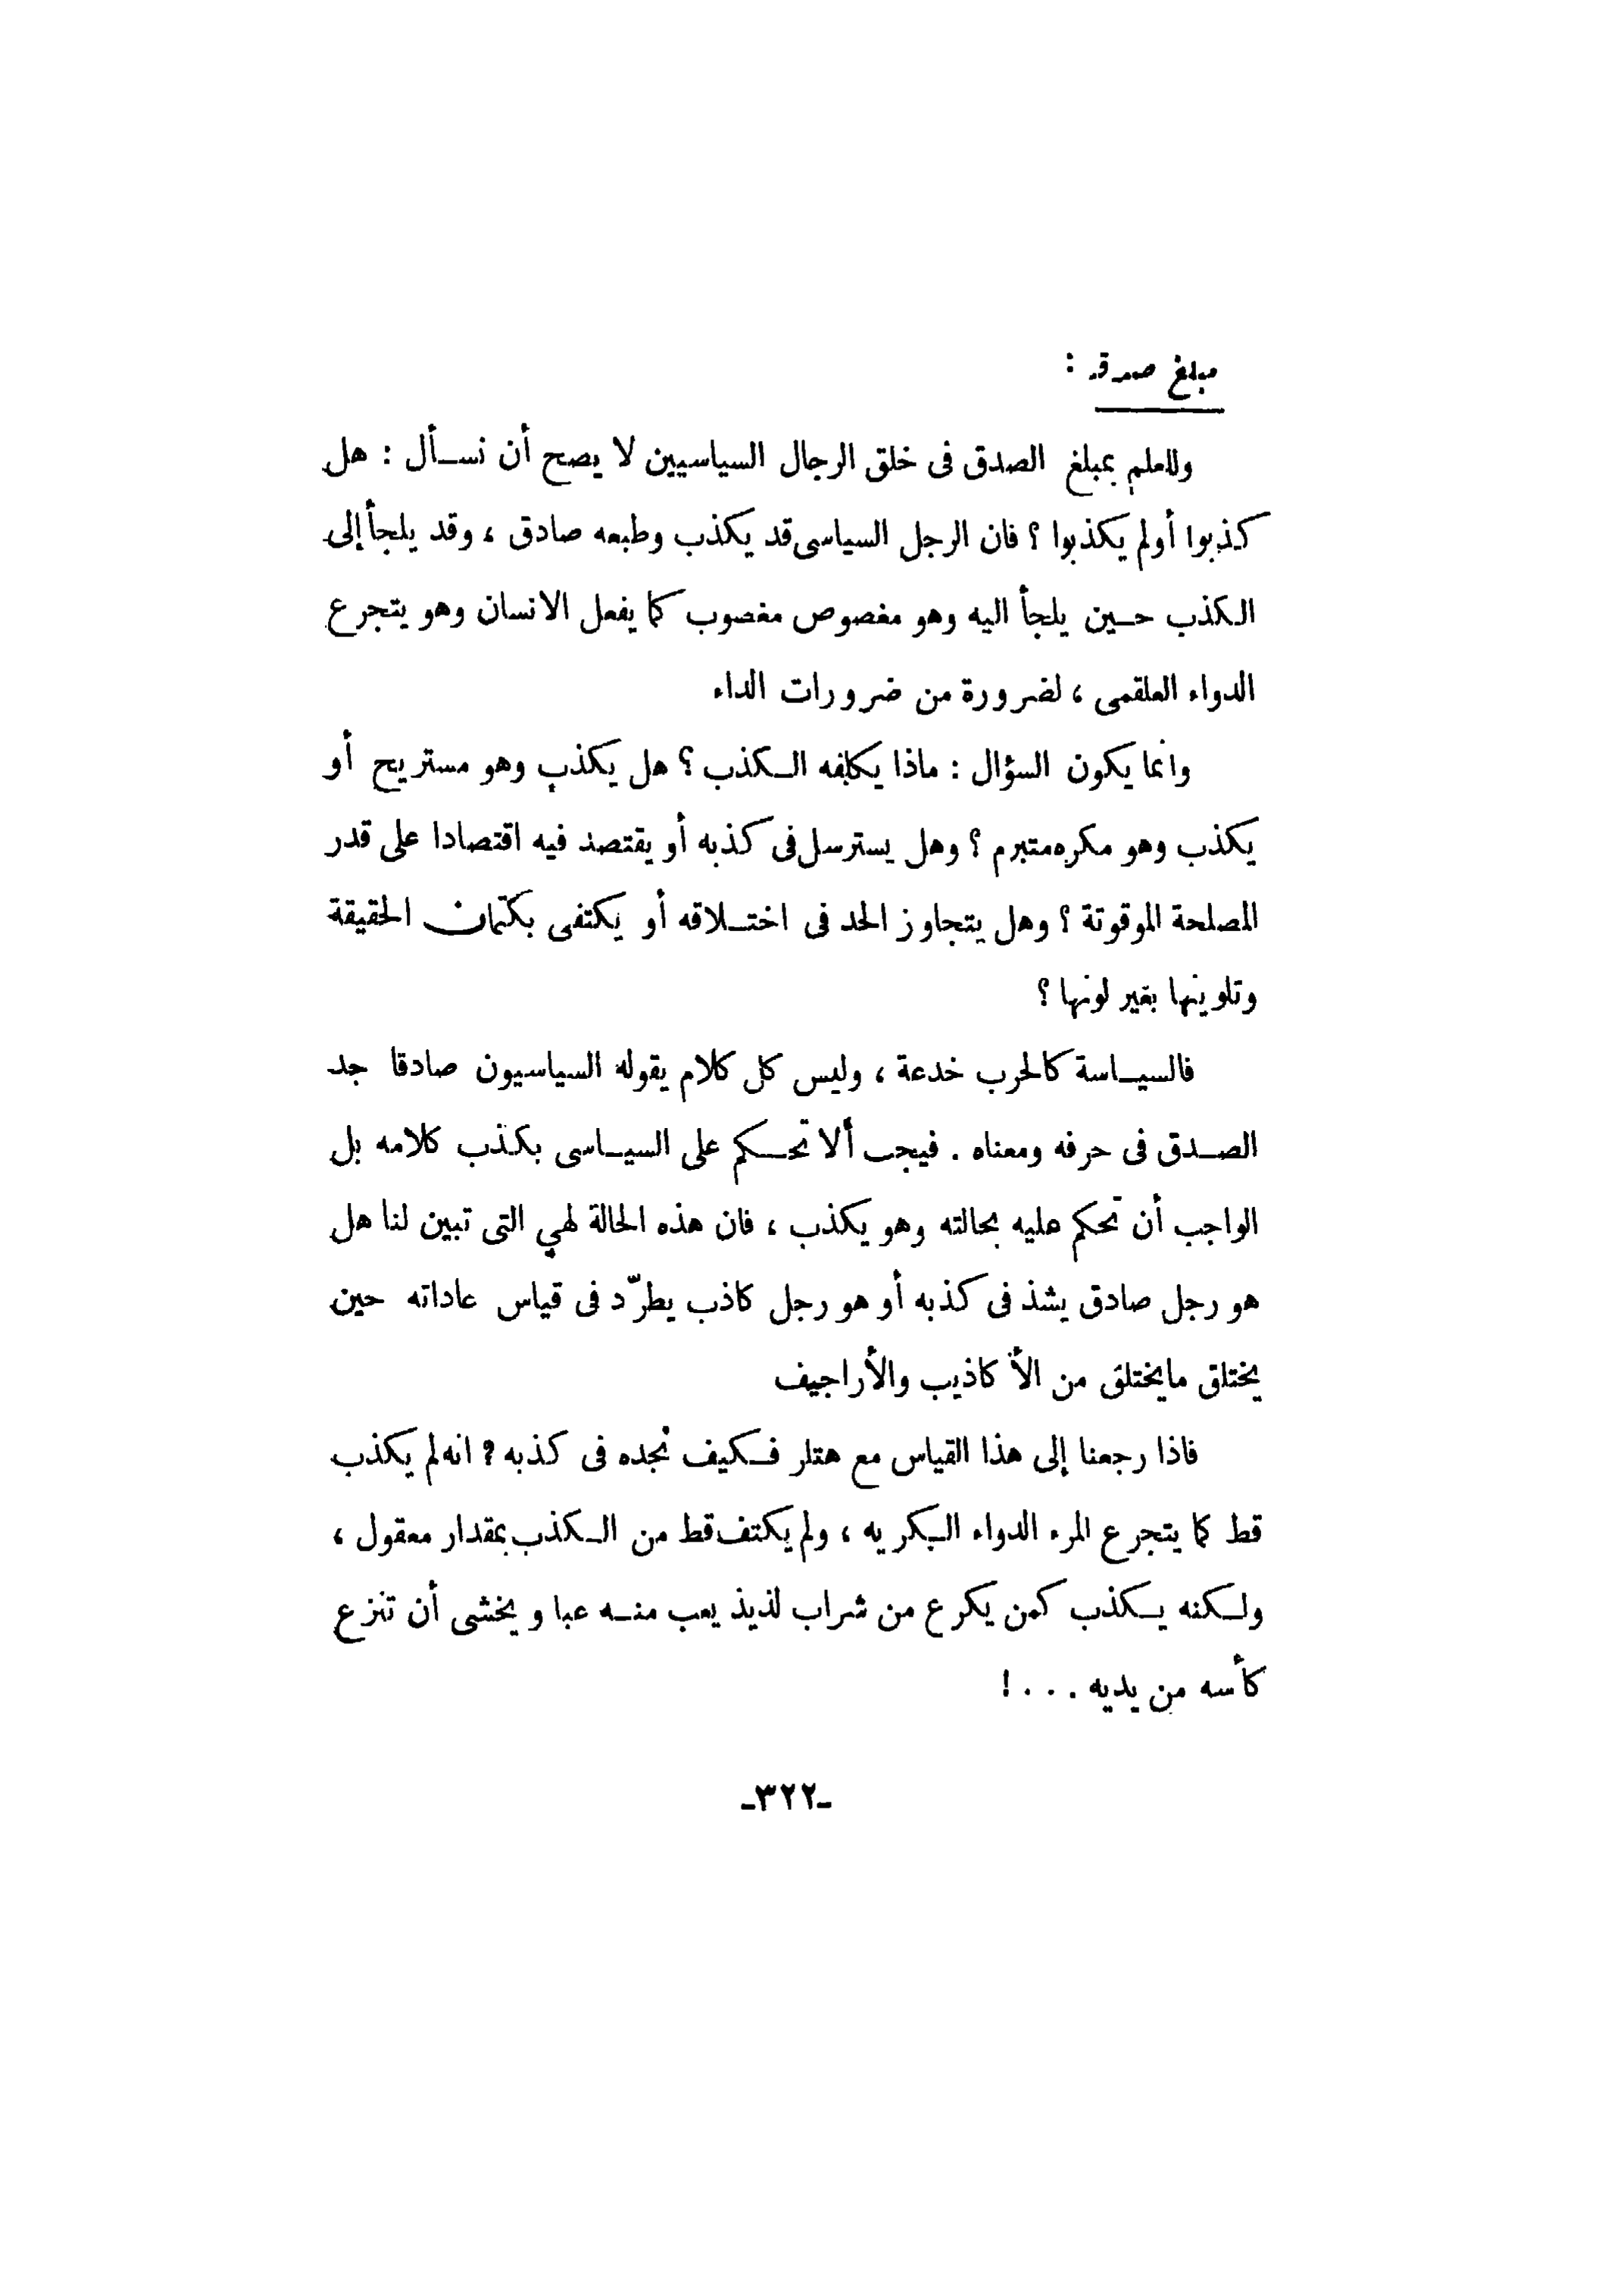 مبلغ صدقه :
وللعلم بمبلغ الصدق فى خلق الرجال السياسيين لا يصح أن نسأل : هل
كذبوا أولم يكذبوا ؟ فان الرجل السياسى قد يكذب وطبعه صادق ، وقد يلجأ إلى
الكذب حين يلجأ اليه وهو مغصوص مغصوب كما يفعل الانسان وهو يتجرع
الدواء العلقمى ، لضرورة من ضرورات الداء
وانما يكون السؤال : ماذا يكلفه الكذب ؟ هل يكذب وهو مستريح أو
يكذب وهو مكره متبرم ؟ وهل يسترسل فى كذبه أو يقتصد فيه اقتصادا على قدر
المصلحة الموقوتة ؟ وهل يتجاوز الحد فى اختلاقه أو يكتفى بكتمان الحقيقة
وتلوينها بغير لونها ؟
فالسياسة كالحرب خدعة ، وليس كل كلام يقوله السياسيون صادقا جد
الصدق فى حرفه ومعناه . فيجب ألا نحكم على السياسى بكذب كلامه بل
الواجب أن نحكم عليه بحالته وهو يكذب ، فان هذه الحالة لهي التى تبين لنا هل
هو رجل صادق يشذ فى كذبه أو هو رجل كاذب يطرّد فى قياس عاداته حين
يختلق مايختلق من الأكاذيب والأراجيف
فاذا رجعنا إلى هذا القياس مع هتلر فكيف نجده فى كذبه ؟ انه لم يكذب
قط كما يتجرع المرء الدواء الكريه ، ولم يكتف قط من الكذب بمقدار معقول ،
ولكنه يكذب كمن يكرع من شراب لذيذ يعب منه عبا ويخشى أن تنزع
كأسه من يديه . . . !
-٣٢٢-